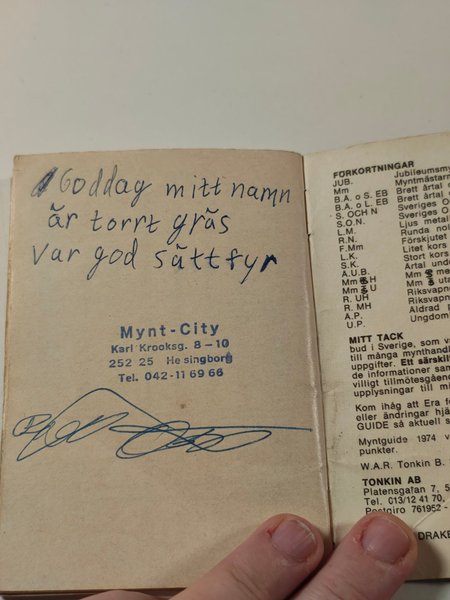 Goddag mitt namn
är torrt gräs
Var god sätt fyr
Mynt-City
Karl Krooksg. 8-10
252 25 Helsingborg
Tel. 042-11 69 66
FÖRKORTNINGAR
JUB. Jubileumsmy
Mm Myntmästarm
B.A. o S. EB Brett årtal o
B.A. o L. EB Brett årtal
S. OCH N Sveriges O
S.O.N. Sveriges O
L.M. Ljus metal
R.N. Runda nol
F.M. Förskjutet
L.K. Litet kors
S.K. Stort kors
Å.U.B. Årtal unde
Mm H Mm me
Mm U Mm uta
R. UH Riksvapn
R. MH Riksvapn
A.P. Äldrad
U.P. Ungdom
MITT TACK
bud i Sverige, som v
till många mynthandl
uppgifter. Ett särskil
de informationer sam
villigt tillmötesgåend
upplysningar till mi
Kom ihåg att Era f
eller ändringar hjä
GUIDE så aktuell s
Myntguide 1974 v
punkter.
W.A.R. Tonkin B.
TONKIN AB
Platensgatan 7, 5
Tel. 013/12 41 70,
Postgiro 761952 -
DRAKE